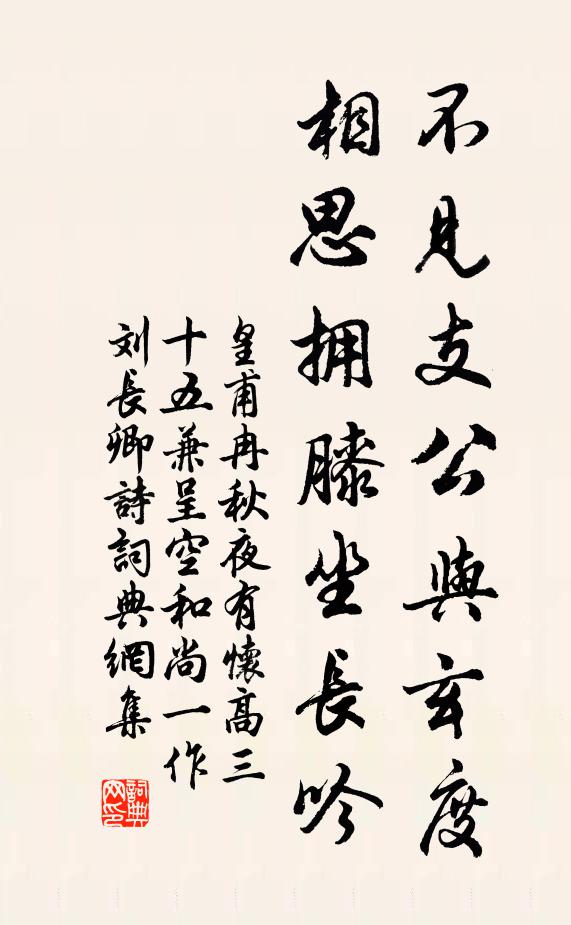 不見支公與玄度
相思擁膝坐長吟
皇甫冉秋夜有懷高三
十五兼呈空和尚一作
刘長卿詩詞典網集
詞典
网印